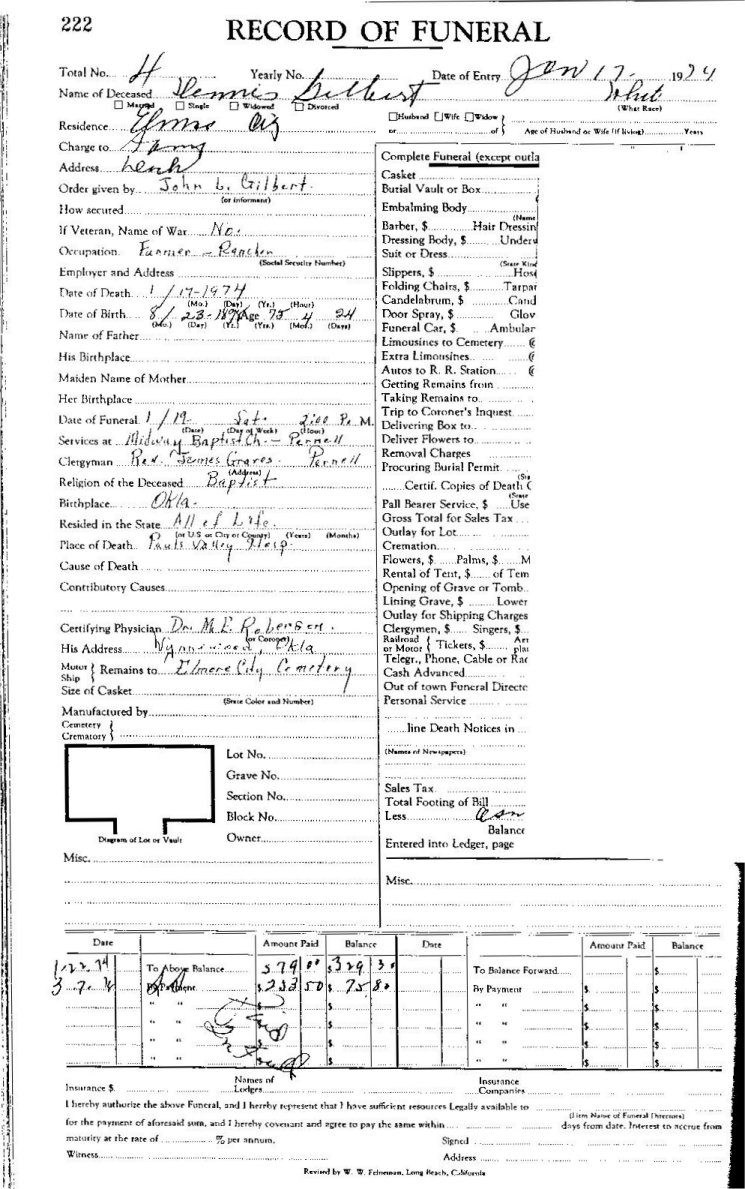 222
RECORD OF FUNERAL
Total No. 4 Yearly No. Date of Entry Jan 17- 1974
Name of Deceased Dennis Gilbert Whit
(What Race)
Married Single Widowed Divorced
Husband Wife Widow
or of Age of Husband or Wife (if living) Years
Residence Elmore City
Charge to Family
Address
Order given by John L. Gilbert.
(or informant)
How secured
If Veteran, Name of War No.
Occupation Farmer – Rancher
(Social Security Number)
Employer and Address
Date of Death 1/17-1974
(Mo.) (Day) (Yr.) (Hour)
Date of Birth 8/23-1898 Age 75 4 24
(Mo.) (Day) (Yr.) (Yrs.) (Mos.) (Days)
Name of Father
His Birthplace
Maiden Name of Mother
Her Birthplace
Date of Funeral 1/19 Sat. 2:00 P. M.
(Date) (Day of Week) (Hour)
Services at Midway Baptist Ch. – Pernell
Clergyman Rev. James Graves. Pernell
(Address)
Religion of the Deceased Baptist
Birthplace Okla.
Resided in the State All of Life.
(or U.S. or City or County) (Years) (Months)
Place of Death Pauls Valley Hosp.
Cause of Death
Contributory Causes
Certifying Physician Dr. M. E. Roberson.
(or Coroner)
His Address Wynnewood, Okla
Motor
Ship Remains to Elmore City Cemetery
Size of Casket
(State Color and Number)
Manufactured by
Cemetery
Crematory
Lot No.
Grave No.
Section No.
Block No.
Owner
Diagram of Lot or Vault
Misc.
Complete Funeral (except outla
Casket
Burial Vault or Box
Embalming Body
(Name
Barber, $ Hair Dressin
Dressing Body, $ Underw
Suit or Dress
(State Kind
Slippers, $ Hose
Folding Chairs, $ Tarpar
Candelabrum, $ Cand
Door Spray, $ Glov
Funeral Car, $ Ambular
Limousines to Cemetery @
Extra Limousines @
Autos to R. R. Station @
Getting Remains from
Taking Remains to
Trip to Coroner's Inquest
Delivering Box to
Deliver Flowers to
Removal Charges
Procuring Burial Permit
(Sta
Certif. Copies of Death C
(State
Pall Bearer Service, $ Use
Gross Total for Sales Tax
Outlay for Lot
Cremation
Flowers, $ Palms, $ M
Rental of Tent, $ of Tem
Opening of Grave or Tomb
Lining Grave, $ Lower
Outlay for Shipping Charges
Clergymen, $ Singers, $
Railroad
or Motor Tickets, $ Aer
plan
Telegr., Phone, Cable or Rad
Cash Advanced
Out of town Funeral Directo
Personal Service
line Death Notices in
(Names of Newspapers)
Sales Tax
Total Footing of Bill
Less
Balance
Entered into Ledger, page
Misc.
Date Amount Paid Balance Date Amount Paid Balance
1-22-74 To Above Balance 579 00 $329 30 To Balance Forward $
3-7-74 By Payment $253 50 $75 80 By Payment $ $
" " $ " " $ $
" " $ " " $ $
" " $ " " $ $
" " $ " " $ $
Insurance $ Names of
Lodges Insurance
Companies
I hereby authorize the above Funeral, and I hereby represent that I have sufficient resources Legally available to
(Firm Name of Funeral Directors)
for the payment of aforesaid sum, and I hereby covenant and agree to pay the same within days from date. Interest to accrue from
maturity at the rate of % per annum. Signed
Witness Address
Revised by W. W. Felmeman, Long Beach, California